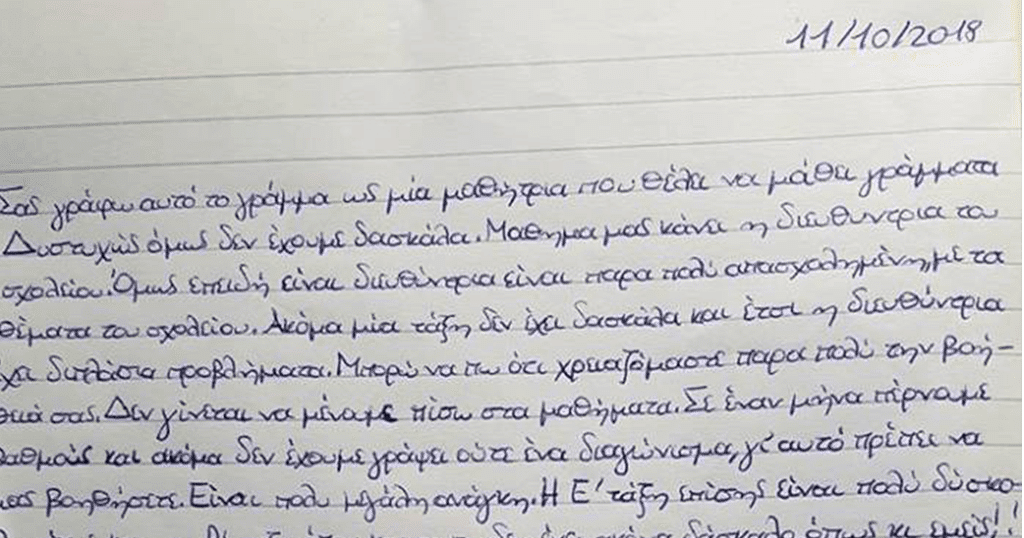 11/10/2018
Σας γράφω αυτό το γράμμα ως μία μαθήτρια που θέλει να μάθει γράμματα
Δυστυχώς όμως δεν έχουμε δασκάλα. Μαθημα μας κάνει η διευθύντρια του
σχολείου. Όμως επειδή είναι διευθύντρια είναι παρα πολύ απασχολημένη, με τα
θέματα του σχολείου. Ακόμα μία τάξη δεν έχει δασκάλα και έτσι η διευθύντρια
χει διπλάσια προβλήματα. Μπορώ να πω ότι χρειαζόμαστε παρα πολύ την βοή-
θειά σας. Δεν γίνεται να μένουμε πίσω στα μαθήματα. Σε έναν μήνα πέρνουμε
βαθμούς και ακόμα δεν έχουμε γράψει ούτε ένα διαγώνισμα, γι' αυτό πρέπει να
μας βοηθήσετε. Είναι πολυ μεγάλη ανάγκη. Η Ε' τάξη επίσης είναι πολύ δύσκο-
δάσκαλο όπως κι εμείς!!